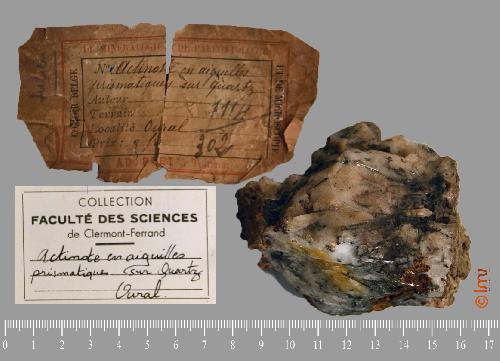 DE MINÉRALOGIE DE PALÉONTOLOGIE
COMPTOIR BELGE
N° Actinote en aiguilles
prismatiques sur Quartz
Auteur
Terrain 1114
Localité Oural
Prix: 302
COLLECTION
FACULTÉ DES SCIENCES
de Clermont-Ferrand
Actinote en aiguilles
prismatiques sur Quartz
Oural
© lmv
0 1 2 3 4 5 6 7 8 9 10 11 12 13 14 15 16 17